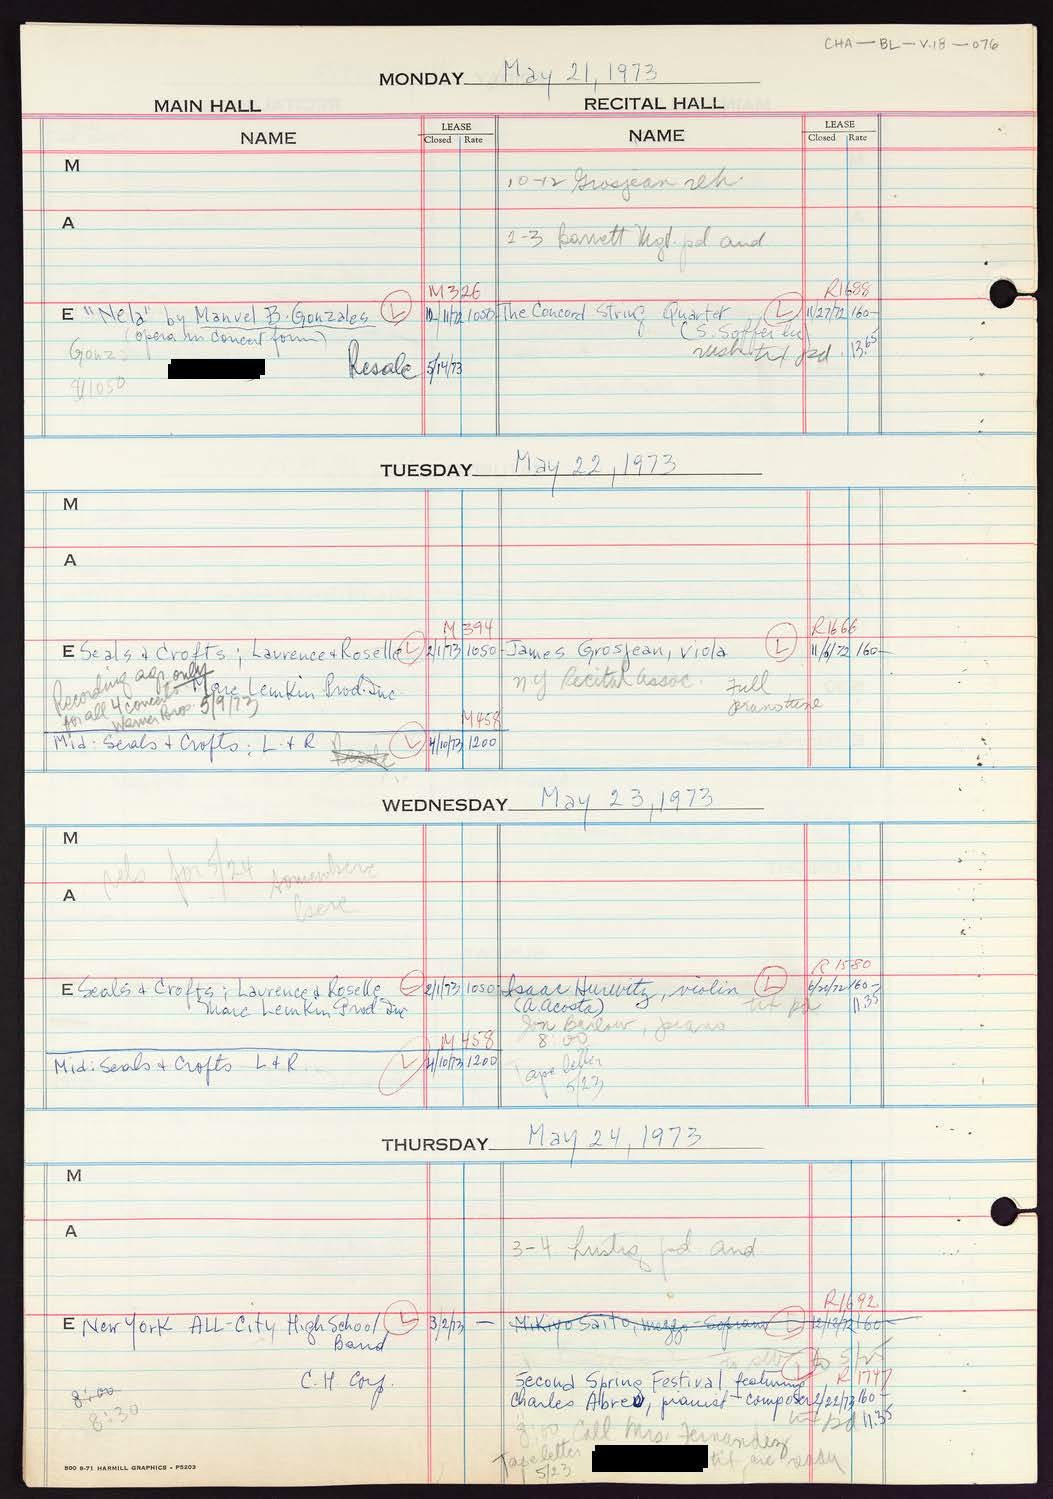 CHA-BL-V.18-076
MONDAY May 21, 1973
MAIN HALL
RECITAL HALL
NAME
LEASE
Closed Rate
NAME
LEASE
Closed Rate
M
10-12 Grosjean reh.
A
2-3 Barrett Mgt. pd aud
M326
R1688
E "Nela" by Manuel B. Gonzales L 1050
(opera in concert form)
Gonz:
8/1050
Resale 5/14/73
The Concord String Quartet L 11/27/72 160-
pd. 13.65
TUESDAY May 22, 1973
M
A
M394
R1666
E Seals & Crofts; Laurence & Roselle L 2/1/73 1050-
Recording agr. only
for all 4 concerts
Warner Bros. 5/9/73
Marc Lemkin Prod. Inc
M458
Mid: Seals & Crofts; L & R Resale L 4/10/73 1200
James Grosjean, viola L 11/6/72 160-
NY Recital Assoc.
Full
WEDNESDAY May 23, 1973
M
for 5/24 somewhere
here
A
R1580
E Seals & Crofts; Laurence & Roselle L 2/1/73 1050-
Marc Lemkin Prod Inc
M458
Mid: Seals & Crofts L & R L 4/10/73 1200
Isaac Hurwitz, violin L 6/20/72 160-
(A. Acosta) tix pd 11.35
Jon Barlow, piano
8:00
Tape letter
5/23
THURSDAY May 24, 1973
M
A
3-4 Lustig pd aud
R1692
E New York ALL-City High School L 3/2/73 —
Band
C.H. Corp.
8:00
8:30
Mikiyo Saito, mezzo-Soprano L 12/12/72 160-
R1747
Second Spring Festival featuring L
Charles Abreu, pianist-composer 2/22/73 160-
tix pd 11.35
8:00 Call Mrs. Fernandez
Tape letter tix are ready
5/23
500 8-71 HARMILL GRAPHICS - P5203